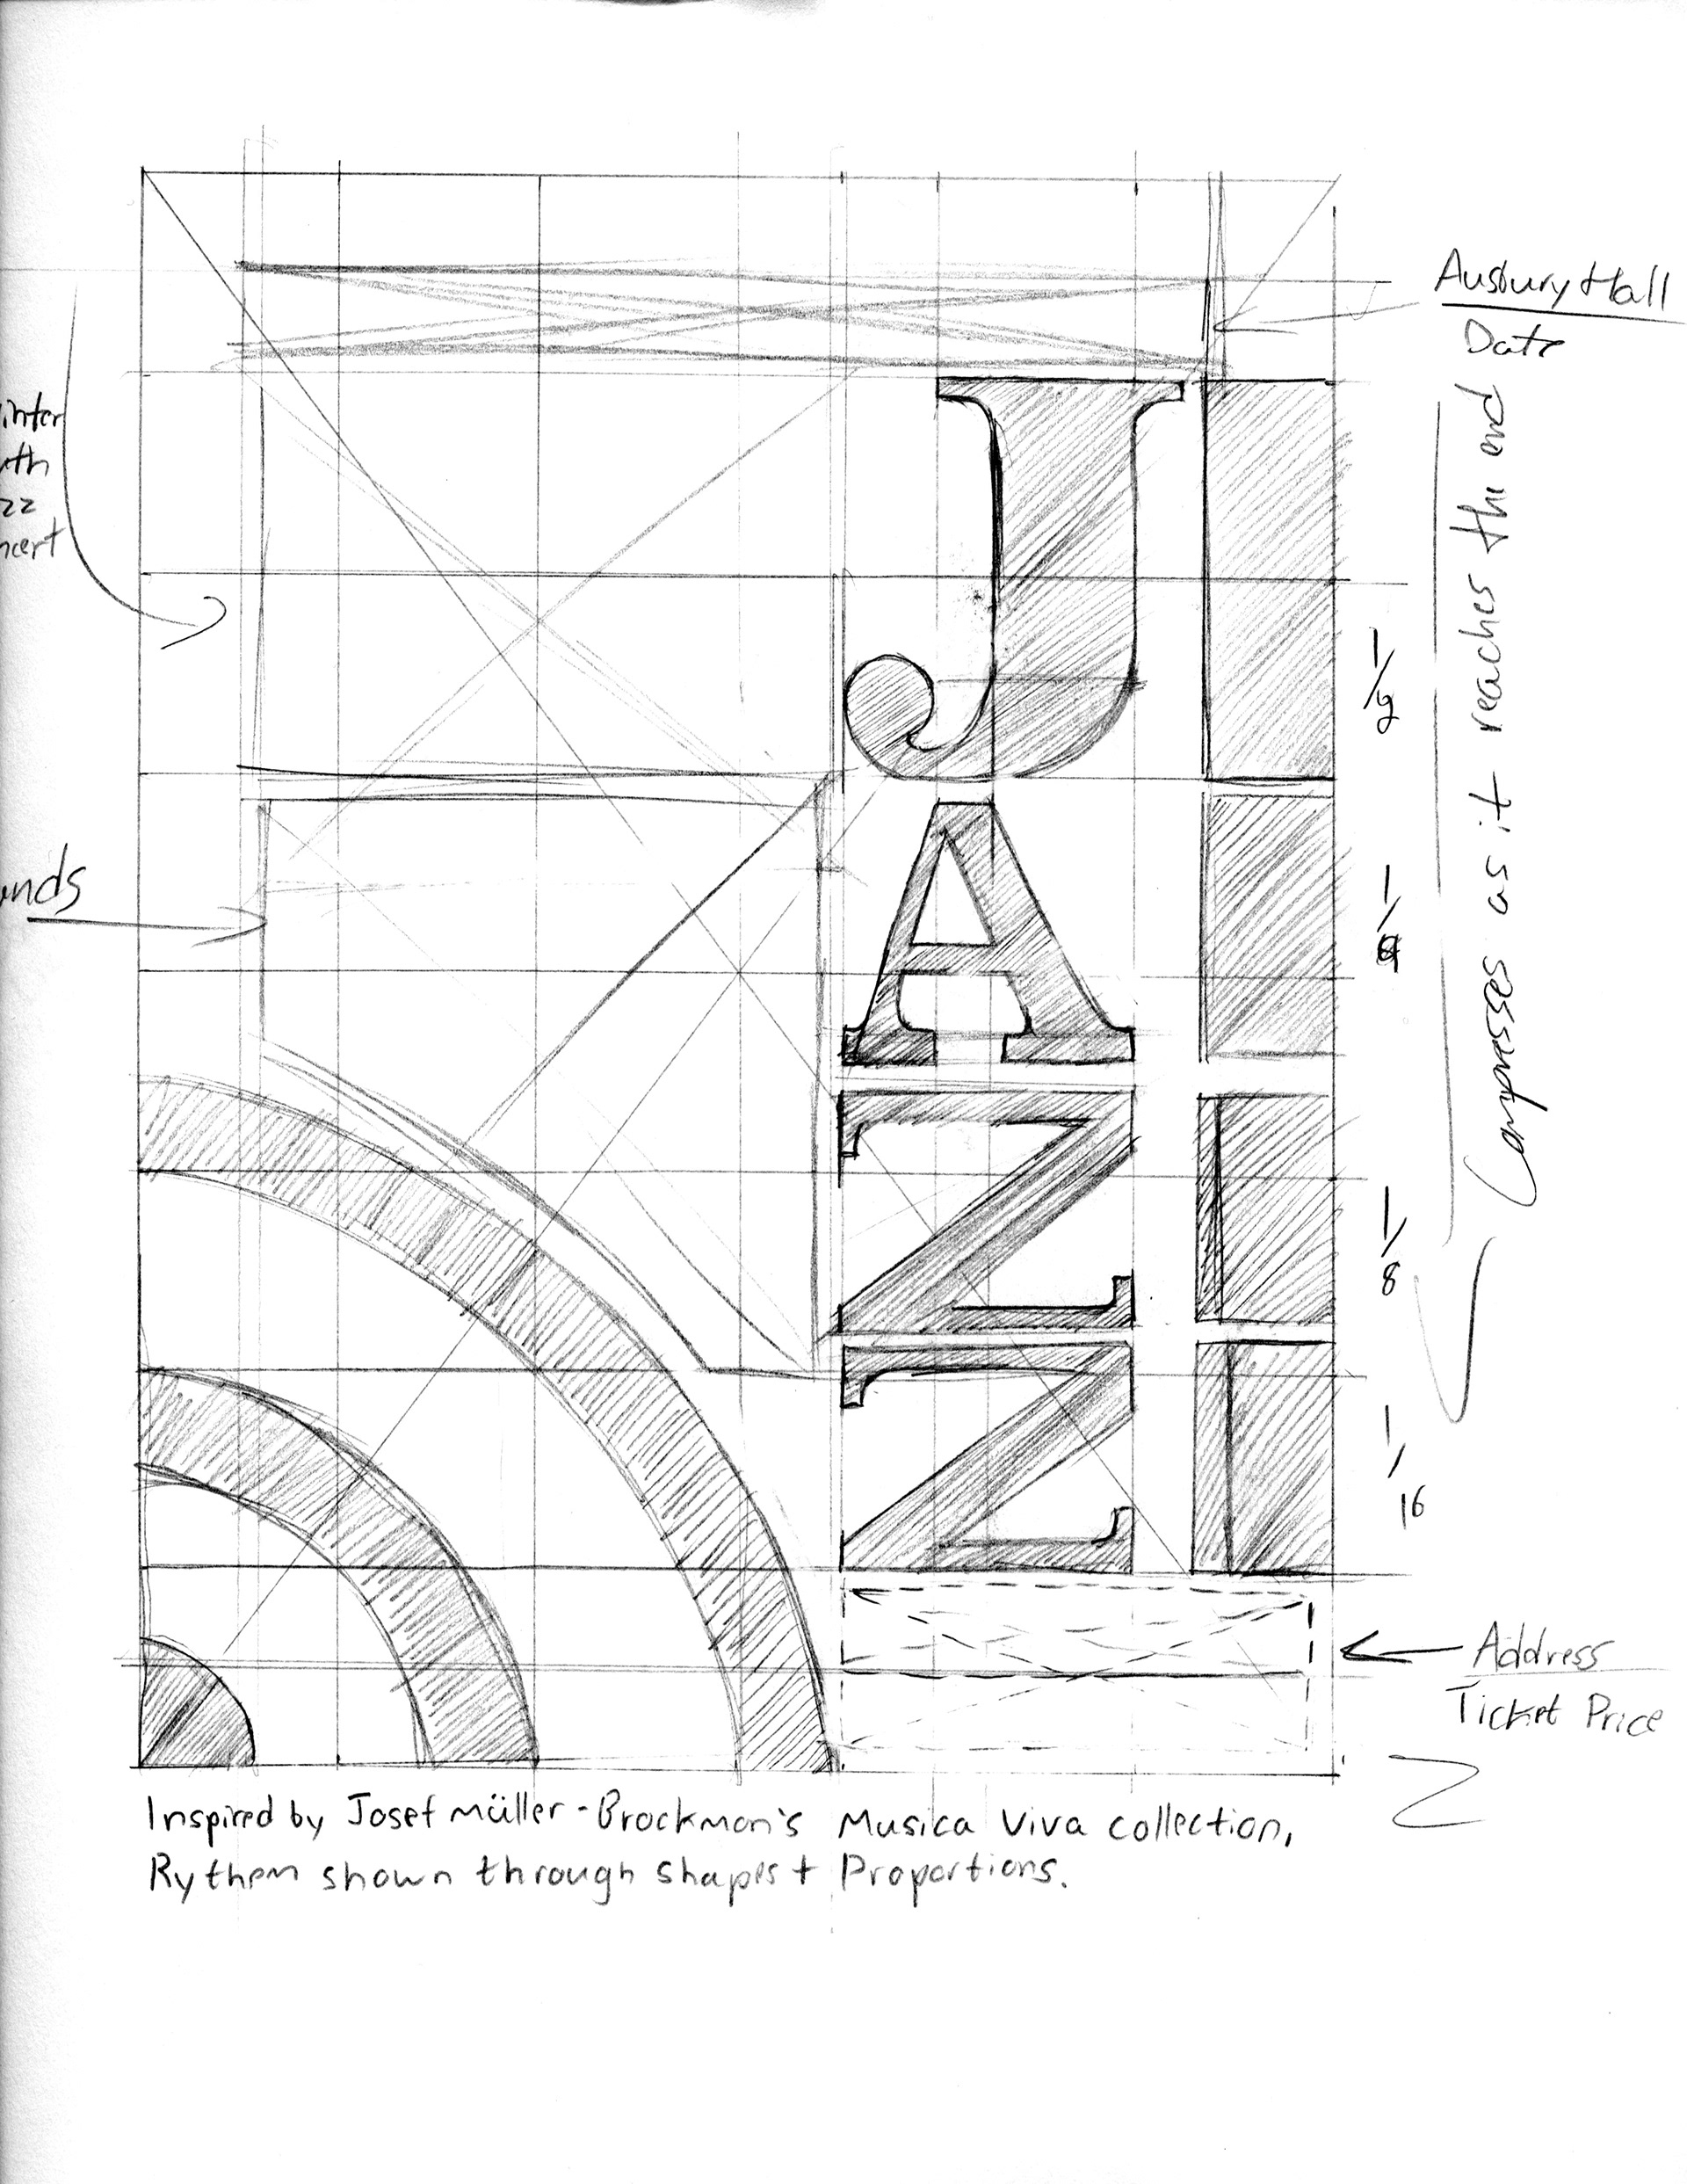 Ausbury Hall
Date
inter
uth
zz
ncert
J
A
Z
Z
Compresses as it reaches the end
1/2
1/4
1/8
1/16
nds
Address
Ticket Price
Inspired by Josef Müller-Brockman's Musica Viva collection,
Rythem shown through shapes + Proportions.